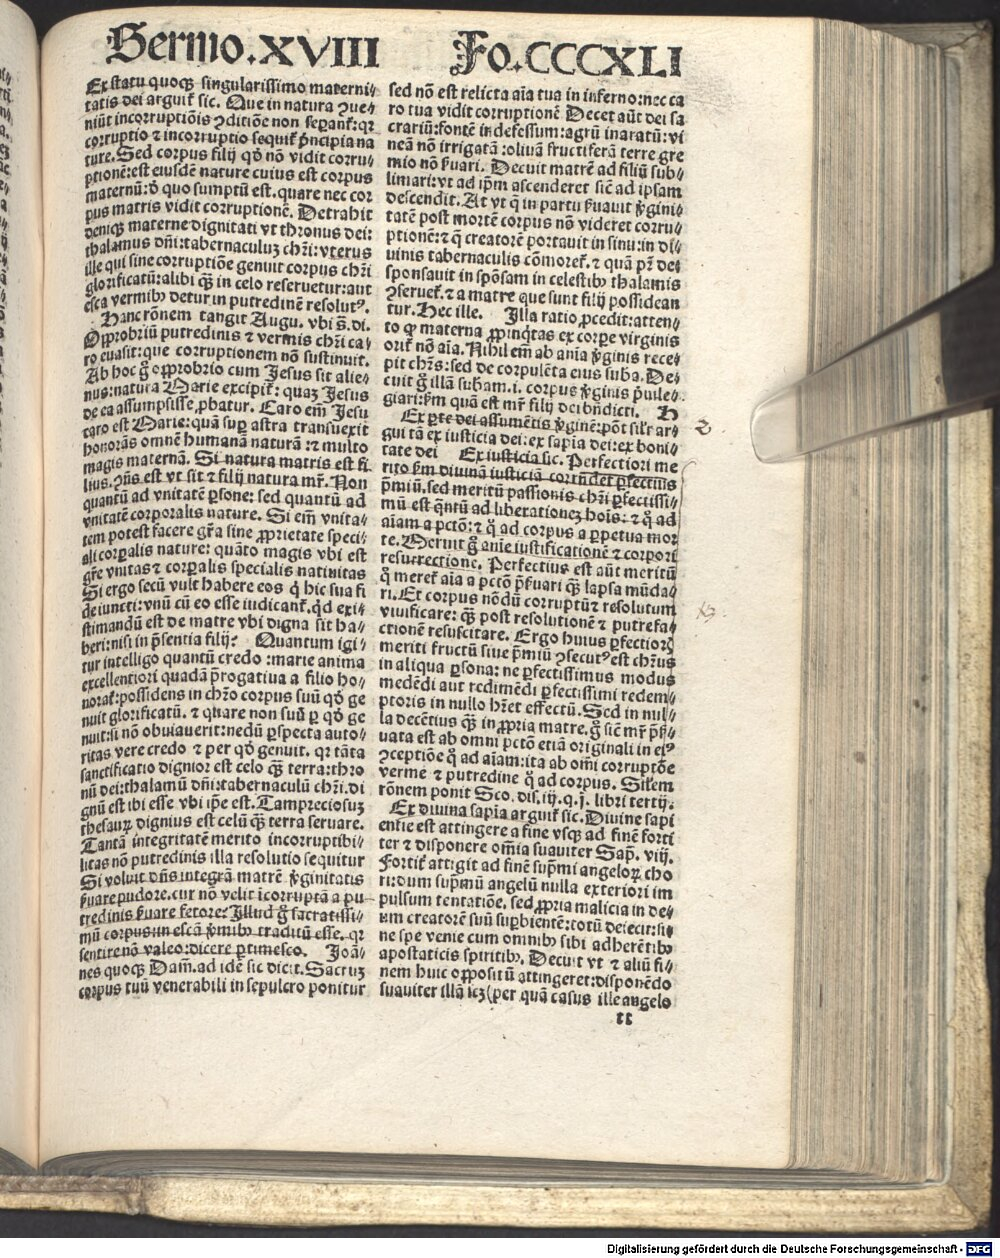 Sermo.XVIII Fo.CCCXLI
Ex statu quoqꝫ singularissimo materni⸗
tatis dei arguit̃ sic. Que in natura ꝯue⸗
niũt incorruptiõis ꝯditiõe non sepant̃: qꝛ
corruptio ⁊ incorruptio sequit̃ p̃ncipia na
ture. Sed corpus filij qd̃ nõ vidit corru⸗
ptionẽ: est eiusdẽ nature cuius est corpus
maternũ: d̃ quo sumptũ est. quare nec cor
pus matris vidit corruptionẽ. Detrahit
deniqꝫ materne dignitati vt thronus dei:
thalamus dñi: tabernaculuꝫ chr̃i: vterus
ille qui sine corruptiõe genuit corpus chr̃i
glorificatũ: alibi qꝫ̃ in celo reseruetur: aut
esca vermibꝰ detur in putredinẽ resolutꝰ.
Hanc rõnem tangit Augu. vbi s̃. di.
Opprobriũ putredinis ⁊ vermis chr̃i ca⸗
ro euasit: que corruptionem nõ sustinuit.
Ab hoc g̃ opprobrio cum Jesus sit alie⸗
nus: natura Marie excipit̃: quaꝫ Jesus
de ea assumpsisse ꝓbatur. Caro em̃ Jesu
caro est Marie: quã suꝑ astra transuexit
honorãs omnẽ humanã naturã: ⁊ multo
magis maternã. Si natura matris est fi
lius. ꝯñs est vt sit ⁊ filij natura mr̃. Non
quantũ ad vnitatẽ ꝑsone: sed quantũ ad
vnitatẽ corporalis nature. Si em̃ vnita⸗
tem potest facere gr̃a sine ꝓprietate speci⸗
ali corꝑalis nature: quãto magis vbi est
gr̃e vnitas ⁊ corꝑalis specialis natiuitas
Si ergo secũ vult habere eos q̃ hic sua fi
de iuncti: vnũ cũ eo esse iudicant̃. qd̃ exi⸗
stimandũ est de matre vbi digna sit ha⸗
beri: nisi in p̃sentia filij? Quantum igi⸗
tur intelligo quantũ credo: marie anima
excellentiori quadã p̃rogatiua a filio ho⸗
norat̃: possidens in chr̃o corpus suũ qd̃ ge
nuit glorificatũ. ⁊ quare non suũ ꝑ qd̃ ge
nuit: si nõ obuiauerit: nedũ ꝑspecta auto⸗
ritas vere credo ⁊ per qd̃ genuit. qꝛ tãta
sanctificatio dignior est celo qꝫ̃ terra: thro
nũ dei: thalamũ dñi: tabernaculũ chr̃i. di
gnũ est ibi esse vbi ip̃e est. Tam preciosuꝫ
thesauꝝ dignius est celũ qꝫ̃ terra seruare.
Tantã integritatẽ merito incorruptibi⸗
litas nõ putredinis illa resolutio sequitur
Si voluit dñs integrã matrẽ v̓ginitatis
s̃uare pudore. cur nõ velit ĩcorruptã a pu⸗
tredinis s̃uare fetore: Illud g̃ sacratissi⸗
mũ corpus in escã v̓mibꝰ traditũ esse. qꝛ
sentire nõ valeo: dicere ꝑtimesco. Joã⸗
nes quoqꝫ Dam̃. ad idẽ sic dicit. Sacruꝫ
corpus tuũ venerabili in sepulcro ponitur
sed nõ est relicta aĩa tua in inferno: nec ca
ro tua vidit corruptionẽ Decet aũt dei sa
crariũ: fontẽ indefessum: agrũ inaratũ: vi
neã nõ irrigatã: oliuã fructiferã terre gre
mio nõ s̃uari. Decuit matrẽ ad filiũ sub⸗
limari: vt ad ip̃m ascenderet sicũ ad ipsam
descendit. At vt q̃ in partu s̃uauit v̓gini⸗
tatẽ post mortẽ corpus nõ videret corru⸗
ptionẽ: ⁊ q̃ creatorẽ portauit in sinu: in di⸗
uinis tabernaculis cõmoret̃. ⁊ quã pr̃ dei
sponsauit in spõsam in celestibꝰ thalamis
ꝯseruet̃. ⁊ a matre que sunt filij possidean
tur. Hec ille. Illa ratio ꝓcedit: atten⸗
to ꝙ materna ꝓpinq̃tas ex corꝑe virginis
orit̃ nõ aĩa. Nihil em̃ ab aĩa v̓ginis rece⸗
pit chr̃s: sed de corpulẽta eius suba. De⸗
cuit g̃ illã subam. i. corpus v̓ginis p̃uile⸗
giari: ẜm quã est mr̃ filij dei bñdicti. H
Ex ꝑte dei assumẽtis v̓ginẽ: põt silr̃ ar⸗
gui tã ex iusticia dei: ex sapĩa dei: ex boni⸗
tate dei Ex iusticia sic. Perfectiori me
rito ẜm diuinã iusticiã corrñdet ꝑfectius
p̃miũ. sed meritũ passionis chr̃i ꝑfectissi⸗
mũ est q̃ntũ ad liberationeꝫ hoĩs: ⁊ q̃ ad
aĩam a pctõ: ⁊ q̃ ad corpus a ꝑpetua mor
te. Meruit g̃ aĩe iustificationẽ ⁊ corpori
resurrectionẽ. Perfectius est aũt meritũ
q̃ meret̃ aĩa a pctõ p̃s̃uari qꝫ̃ lapsa mũda⸗
ri. Et corpus nõdũ corruptũ ⁊ resolutum
viuificare: qꝫ̃ post resolutionẽ ⁊ putrefa⸗
ctionẽ resuscitare. Ergo huius ꝑfectioꝝ
meriti fructũ siue p̃miũ ꝯsecutꝰ est chr̃us
in aliqua ꝑsona: ne ꝑfectissimus modus
medẽdi aut redimẽdi ꝑfectissimi redem⸗
ptoris in nullo hr̃et effectũ. Sed in nul⸗
la decẽtius qꝫ̃ in ꝓpria matre. g̃ sicũ mr̃ p̃s̃⸗
uata est ab omni pctõ etiã originali in eiꝰ
ꝯceptiõe q̃ ad aĩam: ita ab om̃i corruptõe
vermẽ ⁊ putredine q̃ ad corpus. Silem
rõnem ponit Sco. dis. iij. q. j. libri tertij.
Ex diuina sapĩa arguit̃ sic. Diuine sapi
entie est attingere a fine vsqꝫ ad finẽ forti
ter ⁊ disponere om̃ia suauiter Sap̃. viij.
Fortit̃ attigit ad finẽ sup̃mi angeloꝝ cho
ri: dum sup̃mũ angelũ nulla exteriori im
pulsum tentatiõe. sed ꝓpria malicia in de⸗
um creatorẽ suũ suꝑbientẽ: totũ deiecit: si⸗
ne spe venie cum omnibꝰ sibi adherẽtibꝰ
apostaticis spiritibꝰ. Decuit vt ⁊ aliũ fi⸗
nem huic opposi tũ attingeret: disponẽdo
suauiter illã icꝫ (per quã casus ille angelo
II
2